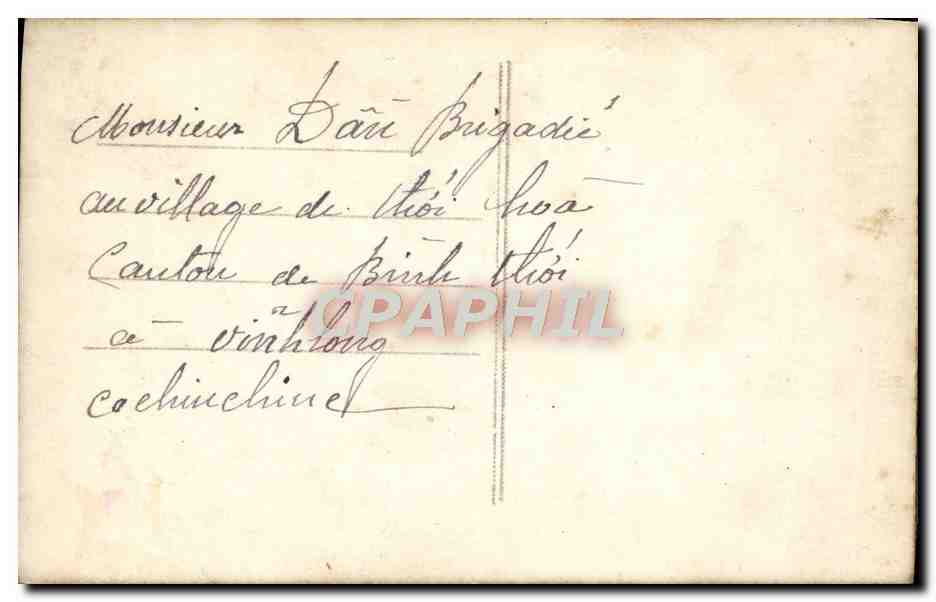 Monsieur Dần Brigadié
au village de thới hoà
Canton de Bình thới
à vĩnhlong
cochinchine
CPAPHIL